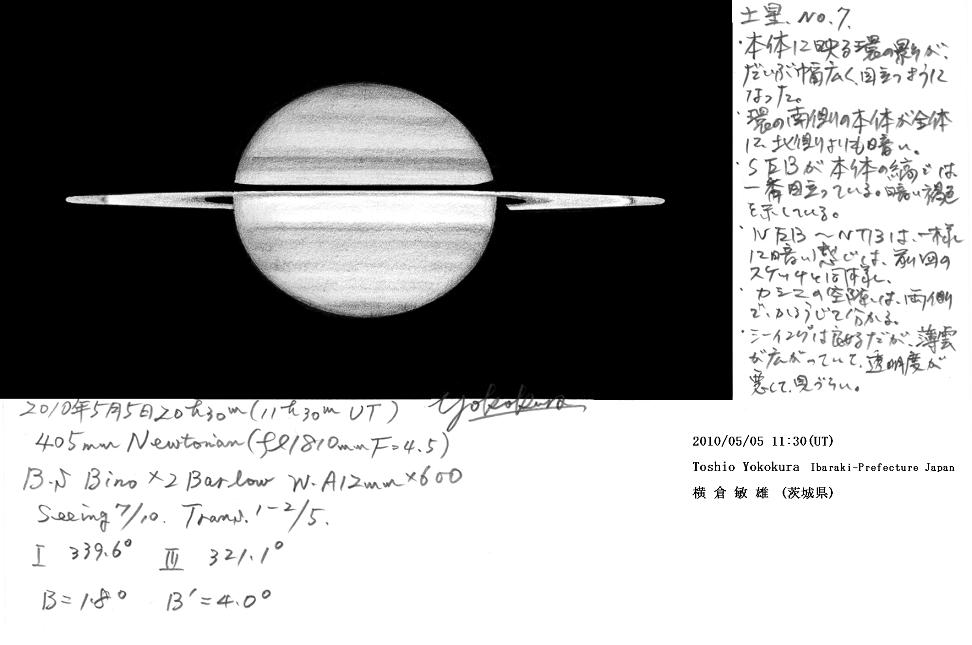 土星. No.7.
・本体に映る環の影が、
だいぶ幅広く、目立つように
なった。
・環の南側の本体が全体
に、北側よりも暗い。
・SEBが本体の縞では
一番目立っている。暗い褐色
を示している。
・NEB～NTBは、一様
に暗い感じは、前回の
スケッチと同様。
・カシニの空隙は、両側
で、かろうじて分かる。
・シーイングは良好だが、薄雲
が広がっていて、透明度が
悪くて、見づらい。
2010年5月5日20h30m(11h30m UT) Yokokura
405mm Newtonian(fl1810mm F=4.5)
B.S Bino ×2 Barlow W.A12mm ×600
Seeing 7/10. Trans. 1-2/5.
I 339.6° III 321.1°
B=1.8° B'=4.0°
2010/05/05 11:30(UT)
Toshio Yokokura Ibaraki-Prefecture Japan
横 倉 敏 雄 (茨城県)